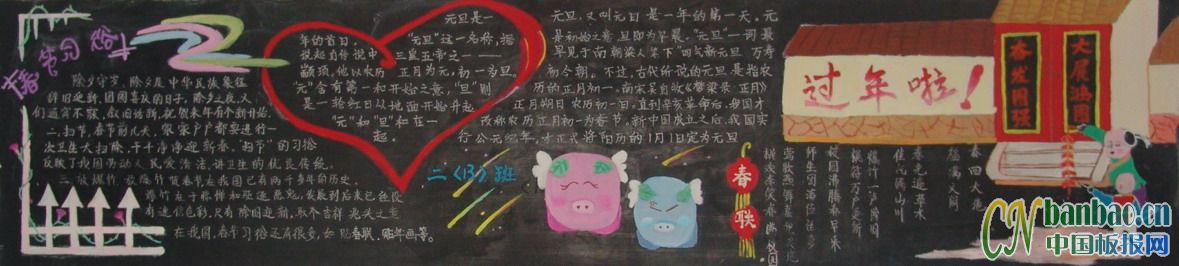 春节习俗
除夕守岁,除夕是中华民族象征
辞旧迎新,团圆喜庆的日子,除夕之夜,人
们通宵不眠,叙旧话新,祝贺来年有个新开始。
二、扫节,春节前几天,家家户户都要进行一
次卫生大扫除,干干净净迎新春。"扫节"的习俗
反映了我国劳动人民爱清洁,讲卫生的优良传统。
三、放爆竹 放爆竹贺春节在我国已有两千多年的历史。
有迷信色彩,只有除旧迎新,取个吉祥
在我国,春节习俗还有很多,如贴春联、贴年画等。
元旦是一
年的首日。"元旦"这一名称,据
说起自传说中三皇五帝之一——
颛顼,他以农历正月为元,初一为旦。
"元"含有第一和开始之意,"旦"则
是一轮红日从地面开始升起
"元"和"旦"和在一
起。
元旦,又叫元日是一年的第一天。元
是初始之意,旦即为早晨。"元旦"一词最
早见于南朝梁人笔下"四气新元旦 万寿
初今朝。不过,古代所说的元旦是指农
历的正月初一。南宋吴自牧《梦粱录 正月》
正月朔日 农历初一日,直到辛亥革命后,我国才
改称农历正月初一为春节。新中国成立之后,我国实
行公元纪年,才正式将阳历的1月1日定为元旦
二〈13〉班
春联
过年啦!
大展鸿图
奋发图强
春回大地
福满人间
春光遍草木
佳气满山川
爆竹一声除旧
桃符万户更新
CN banbao.cn
中国板报网